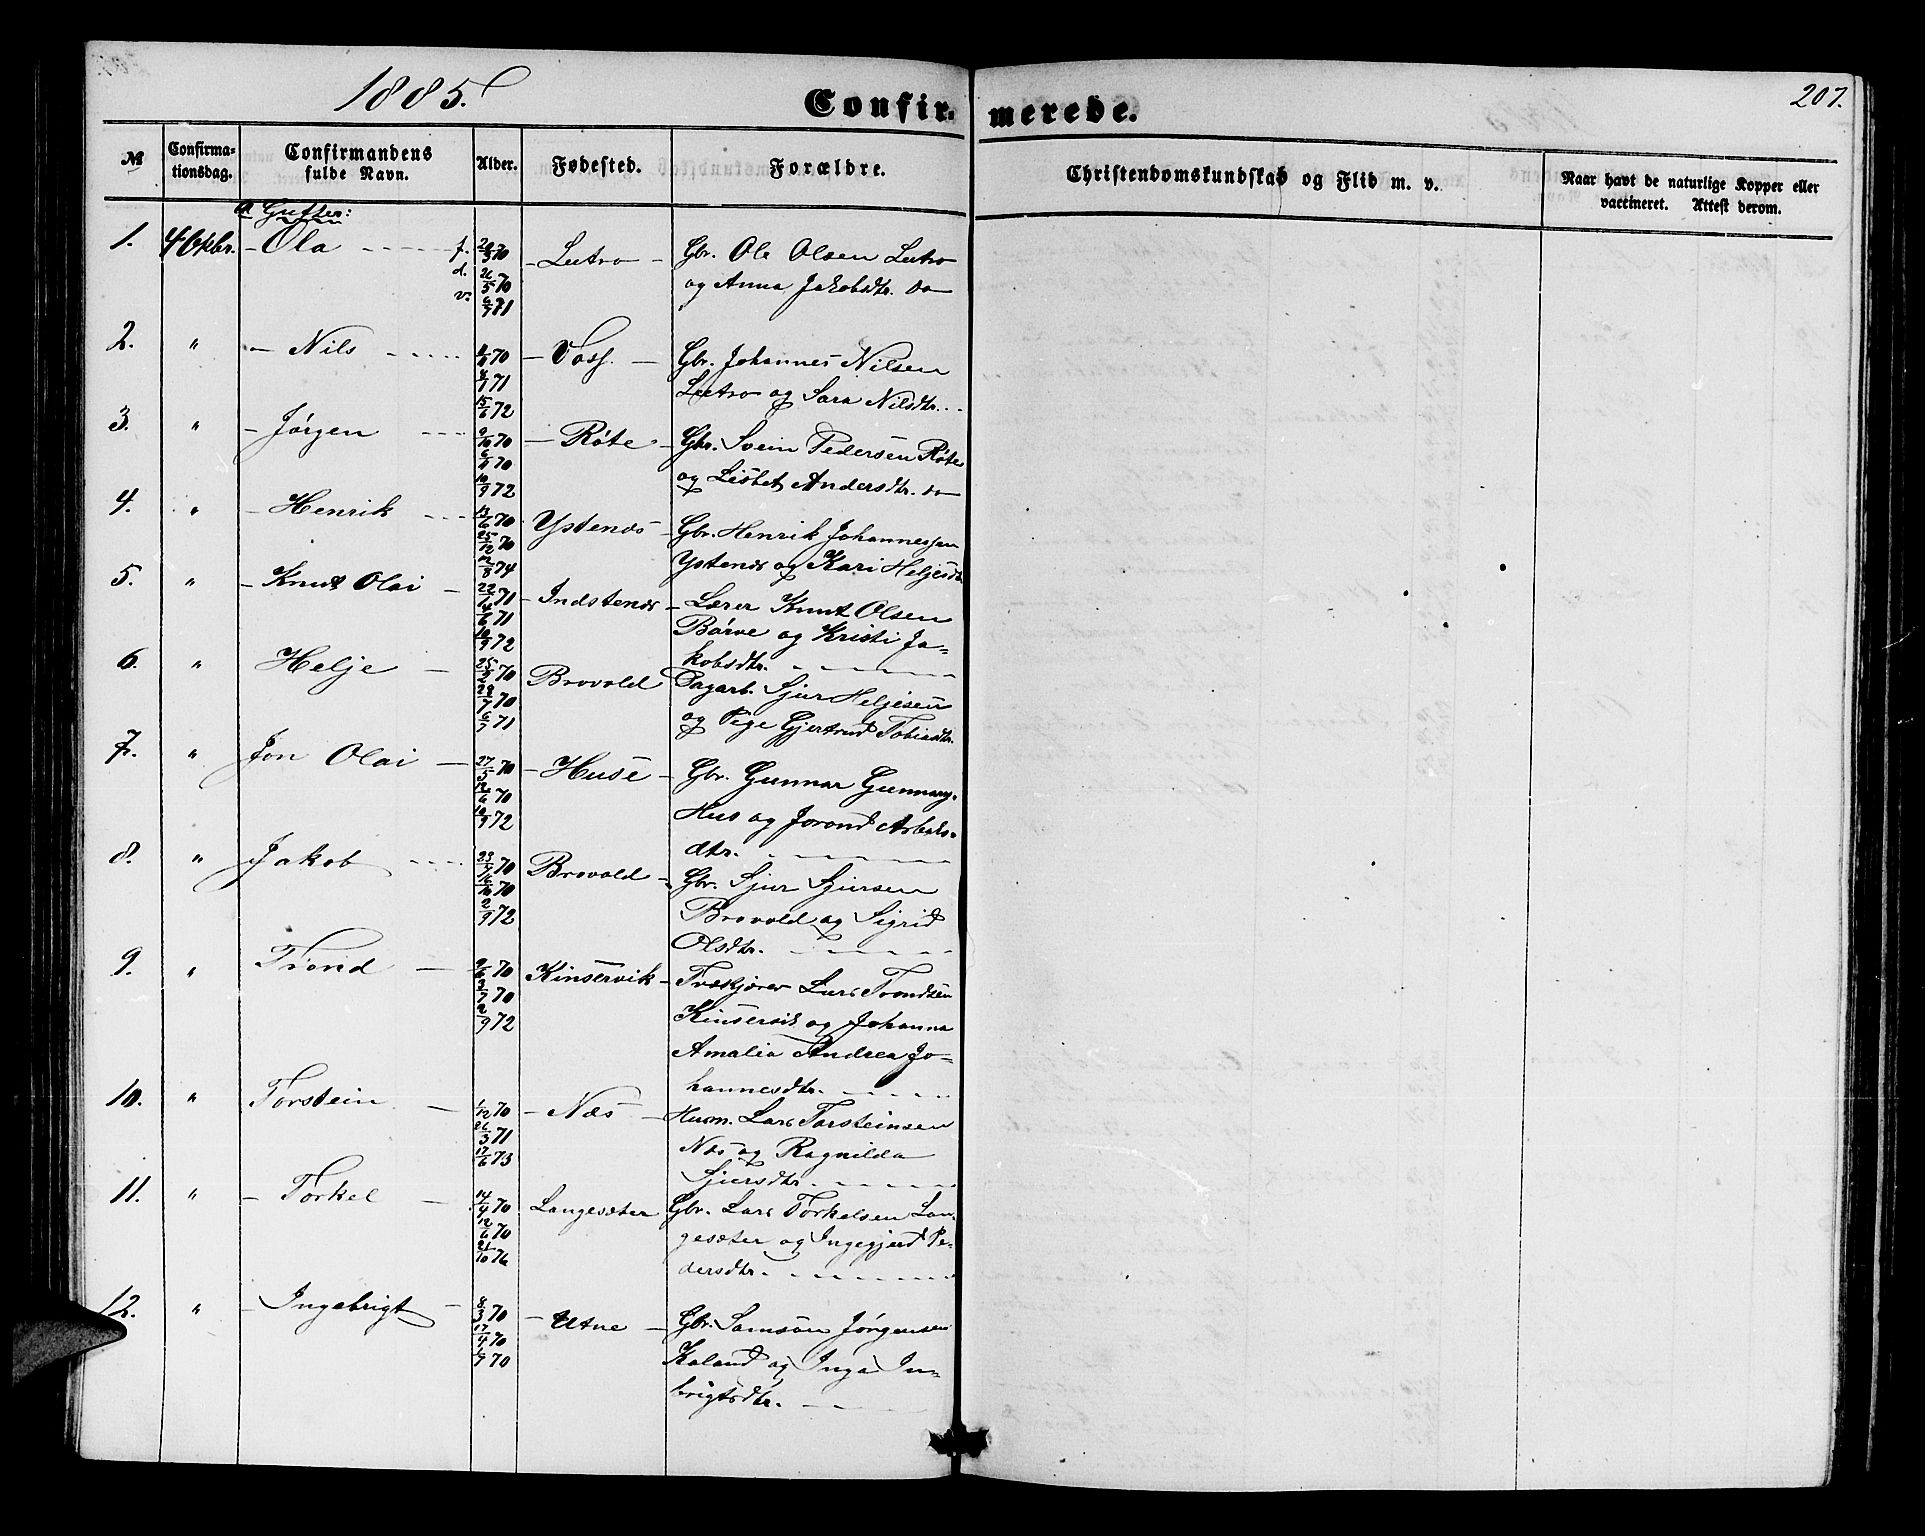 1885.
Confir-
merede.
207.
№
Confirma-
tionsdag.
Confirmandens
fulde Navn.
Alder.
Fødested.
Forældre.
Christendomskundskab og Flid m. v.
Naar havt de naturlige Kopper eller
vaccineret. Attest derom.
a Gutter:
1. 4 Okbr. - Ola - - - - f. 70 - Lutro - Gbr. Ole Olsen Lutro
d. 26/5 70 og Anna Jakobsdtr. do
v. 6/7 71
2. " - Nils - - - - 70 - Voss. - Gbr. Johannes Nilsen
71 Lutro og Sara Nilsdtr. - -
15/6 72
3. " - Jørgen - - - - 9/10 70 - Røte - Gbr. Svein Pedersen Røte
6/11 70 og Lisbet Andersdtr. do
10/9 72
4. " - Henrik - - - 13/6 70 Ystenæs - Gbr. Henrik Johannessen
25/12 70 Ystenæs og Kari Heljesdtr
12/8 74
5. " - Knut Olai - 22/1 71 - Indstenæs - Lærer Knut Olsen
71 Børve og Kristi Ja-
10/9 72 kobsdtr.
6. " Helje - 25/2 70 Brovold Dagarb. Sjur Heljesen
70 og Pige Gjertrud Tobiasdtr.
6/7 71
7. " Jon Olai - 27/5 70 - Huse - Gbr. Gunnar Gunnars.
12/6 70 Hus og Jorand Asbjs-
10/9 72 dtr.
8. " Jakob - - - 70 Brovold - Gbr. Sjur Sjursen
16/10 70 Brovold og Sigrid
2/9 72 Olsdtr.
9. " Trond - 9/6 70 Kinservik - Træskjærer Lars Trondsen
3/7 70 Kinservik og Johanna
2/9 72 Amalia Andrea Jo-
hannesdtr.
10. " Torstein - 1/12 70 - Næs - Husm. Lars Torsteinsen
26/3 71 Næs og Ragnilda
17/6 73 Sjursdtr.
11. " - Torkel - 14/4 70 Langesæter Gbr. Lars Torkelsen Lan-
12/6 70 gesæter og Ingegjerd Pe-
21/10 76 dersdtr.
12. " - Ingebrigt - 8/3 70 - Utne - Gbr. Samson Jørgensen
17/4 70 Kaland og Inga In-
1/9 70 brigtsdtr.